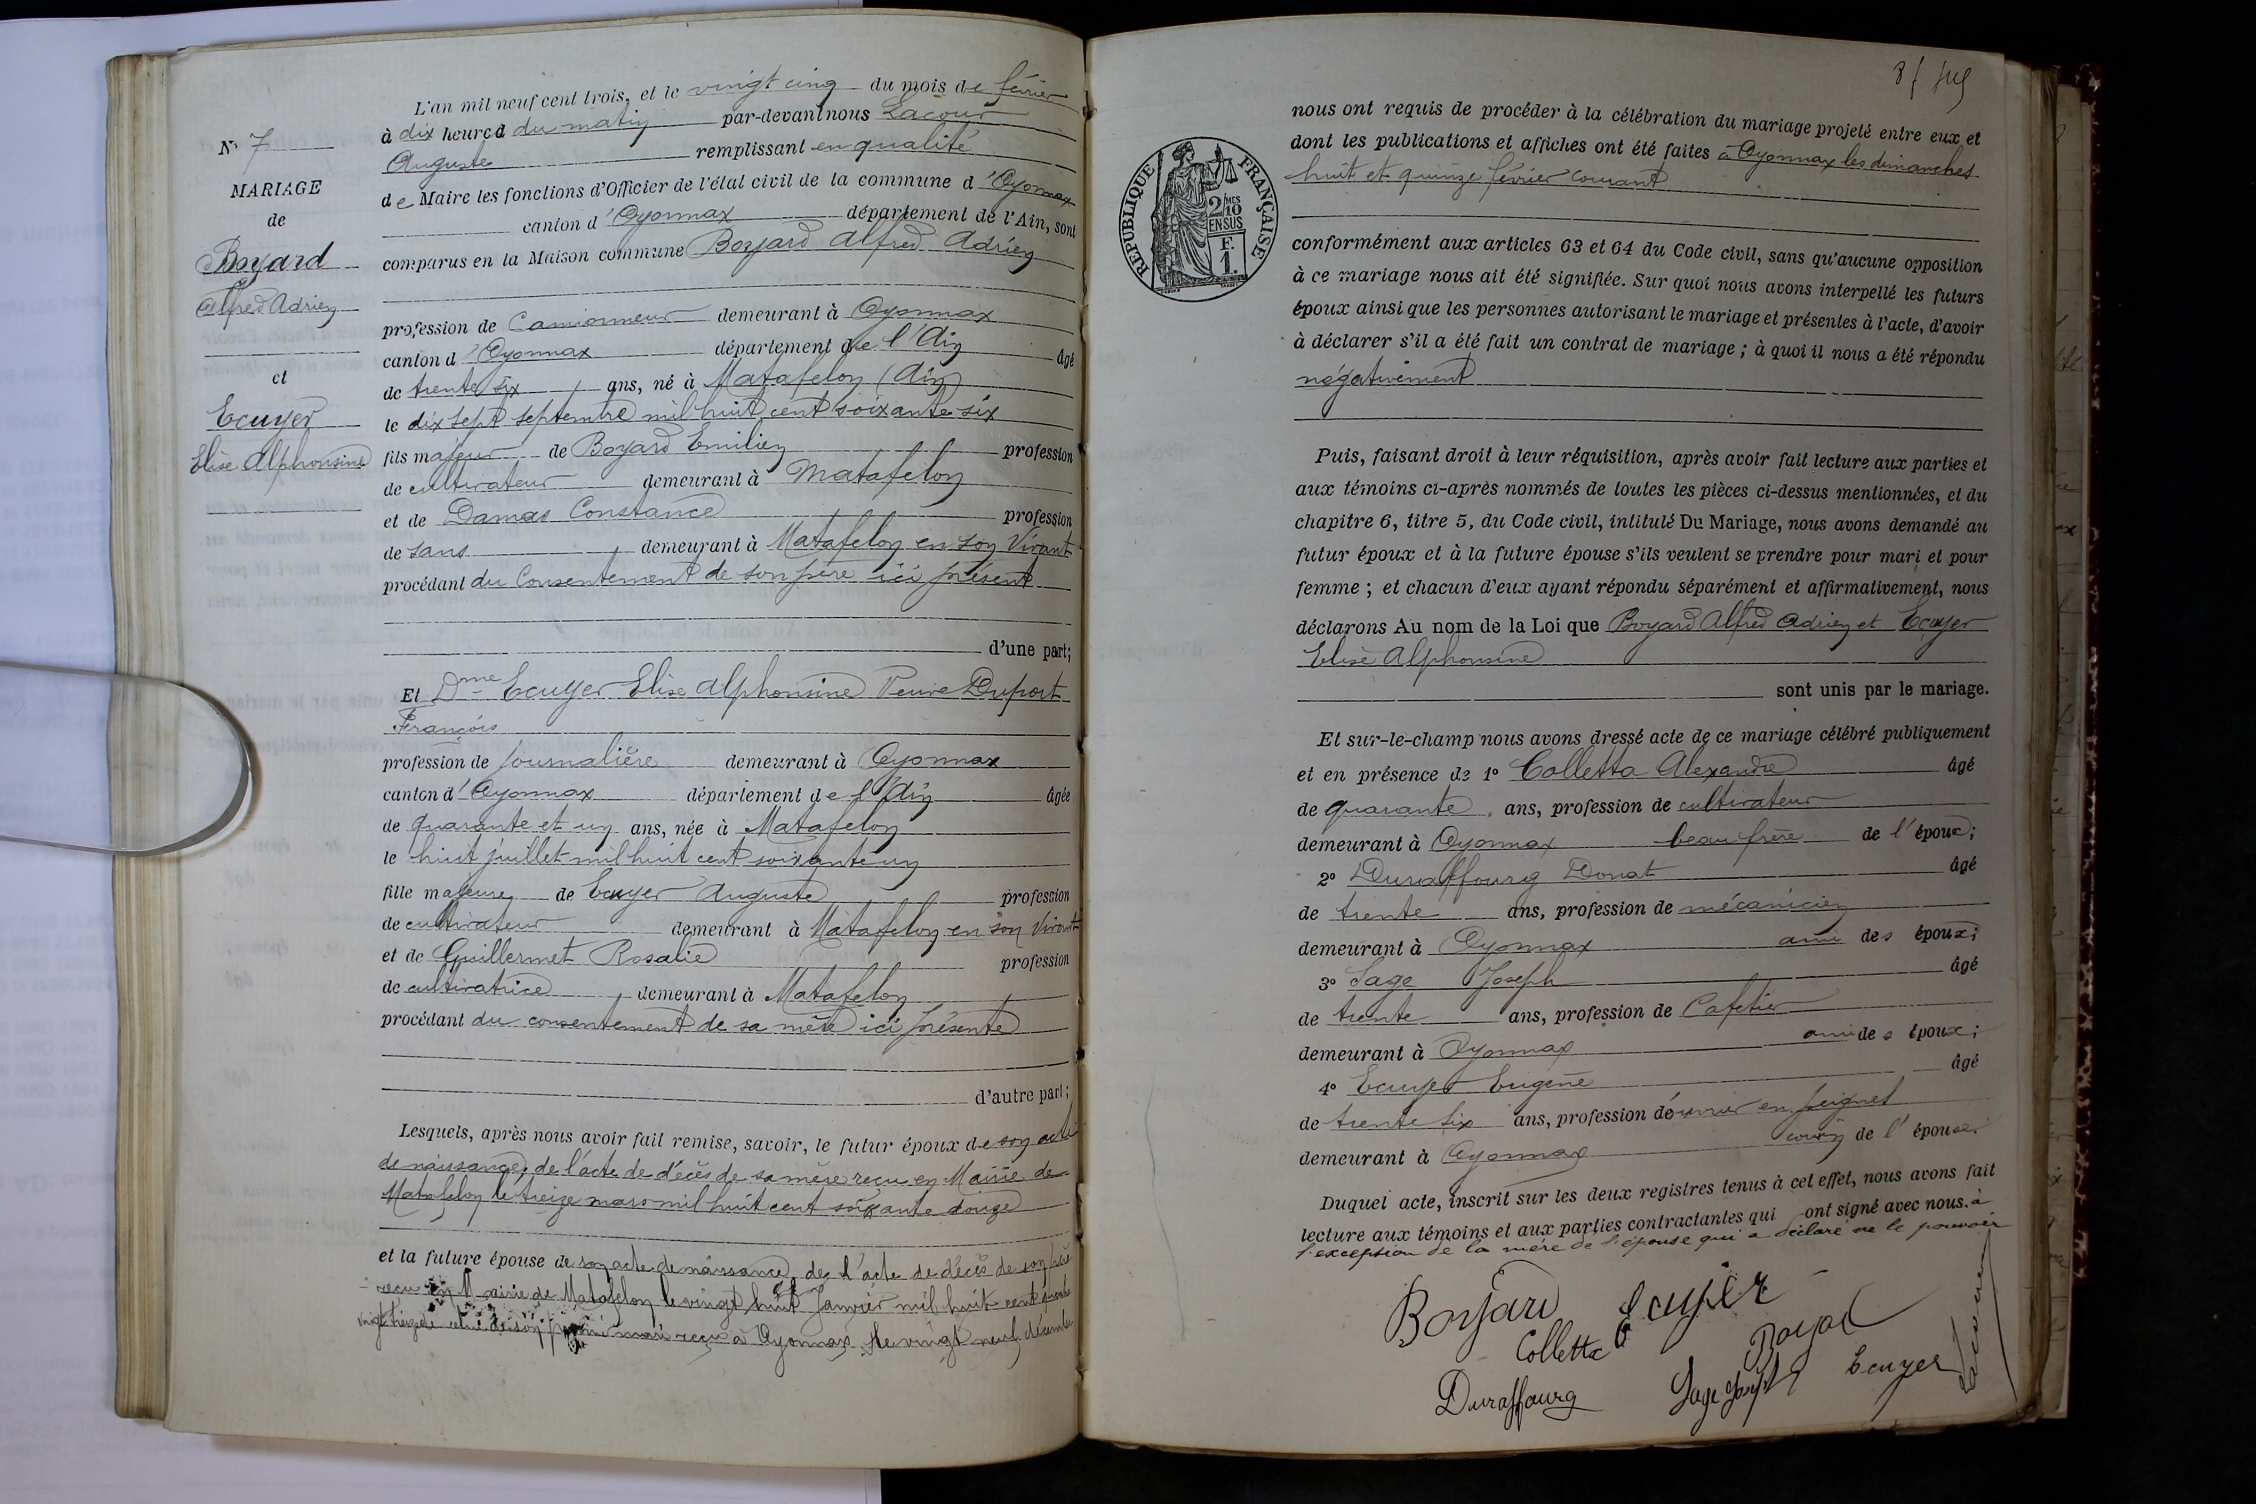 L'an mil neuf cent trois, et le vingt cinq du mois de février
à dix heures du matin par-devant nous Lacour
Auguste remplissant en qualité
de Maire les fonctions d'Officier de l'état civil de la commune d'Oyonnax
canton d'Oyonnax département de l'Ain, sont
comparus en la Maison commune Boyard Alfred Adrien
profession de Camionneur demeurant à Oyonnax
canton d'Oyonnax département de l'Ain âgé
de trente six ans, né à Matafelon (Ain)
le dix sept septembre mil huit cent soixante six
fils majeur de Boyard Emilien profession
de cultivateur demeurant à Matafelon
et de Damas Constance profession
de sans demeurant à Matafelon en son vivant
procédant du consentement de son père ici présent
d'une part;
Et Dme Ecuyer Elise Alphonsine Veuve Duport
François
profession de journalière demeurant à Oyonnax
canton d'Oyonnax département de l'Ain âgée
de quarante et un ans, née à Matafelon
le huit juillet mil huit cent soixante un
fille majeure de Ecuyer Auguste profession
de cultivateur demeurant à Matafelon en son vivant
et de Guillermet Rosalie profession
de cultivatrice demeurant à Matafelon
procédant du consentement de sa mère ici présente
d'autre part;
Lesquels, après nous avoir fait remise, savoir, le futur époux de son acte
de naissance, de l'acte de décès de sa mère reçu en Mairie de
Matafelon le treize mars mil huit cent soixante douze
et la future épouse de son acte de naissance, de l'acte de décès de son père
reçu en Mairie de Matafelon le vingt huit Janvier mil huit cent quatre
vingt treize et celui de son premier mari reçu à Oyonnax le vingt neuf décembre
N° 7
MARIAGE
de
Boyard
Alfred Adrien
et
Ecuyer
Elise Alphonsine
nous ont requis de procéder à la célébration du mariage projeté entre eux et
dont les publications et affiches ont été faites à Oyonnax les dimanches
huit et quinze février courant
RÉPUBLIQUE FRANÇAISE
2/10 MES
EN SUS
F.
1.
conformément aux articles 63 et 64 du Code civil, sans qu'aucune opposition
à ce mariage nous ait été signifiée. Sur quoi nous avons interpellé les futurs
époux ainsi que les personnes autorisant le mariage et présentes à l'acte, d'avoir
à déclarer s'il a été fait un contrat de mariage ; à quoi il nous a été répondu
négativement
Puis, faisant droit à leur réquisition, après avoir fait lecture aux parties et
aux témoins ci-après nommés de toutes les pièces ci-dessus mentionnées, et du
chapitre 6, titre 5, du Code civil, intitulé Du Mariage, nous avons demandé au
futur époux et à la future épouse s'ils veulent se prendre pour mari et pour
femme ; et chacun d'eux ayant répondu séparément et affirmativement, nous
déclarons Au nom de la Loi que Boyard Alfred Adrien et Ecuyer
Elise Alphonsine
sont unis par le mariage.
Et sur-le-champ nous avons dressé acte de ce mariage célébré publiquement
et en présence de 1° Colletta Alexandre âgé
de quarante ans, profession de cultivateur
demeurant à Oyonnax beau frère de l'époux;
2° Duraffourg Donat âgé
de trente ans, profession de mécanicien
demeurant à Oyonnax ami des époux;
3° Sage Joseph âgé
de trente ans, profession de Cafetier
demeurant à Oyonnax ami des époux;
4° Ecuyer Eugène âgé
de trente six ans, profession d'ouvrier en peignes
demeurant à Oyonnax cousin de l'épouse
Duquel acte, inscrit sur les deux registres tenus à cet effet, nous avons fait
lecture aux témoins et aux parties contractantes qui ont signé avec nous. à
l'exception de la mère de l'épouse qui a déclaré ne le pouvoir
Boyard Ecuyer
Colletta Boyard
Duraffourg Sage Joseph Ecuyer